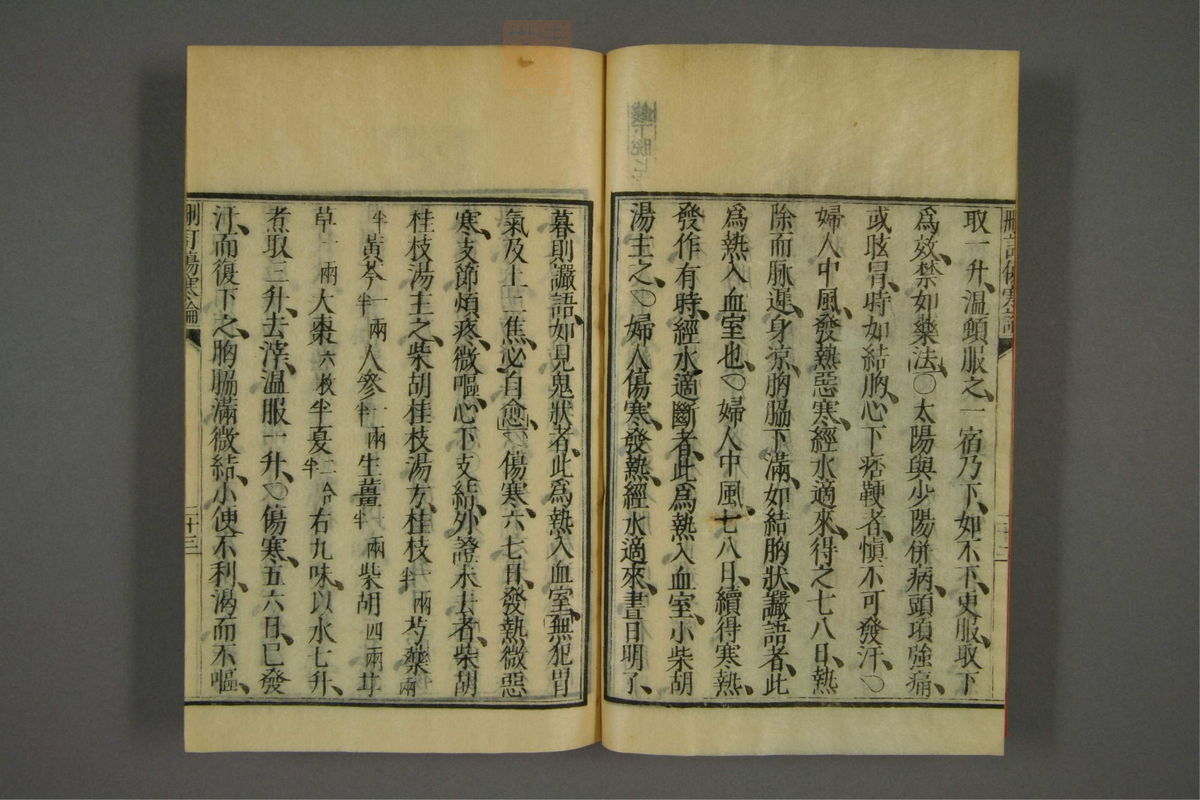 取一升、溫頓服之、一宿乃下、如不下、更服、取下
爲效、禁如藥法、○太陽與少陽併病、頭項強痛、
或眩冒、時如結胸、心下痞鞕者、愼不可發汗、○
婦人中風、發熱惡寒、經水適來、得之七八日、熱
除而脉遲、身涼、胸脇下滿、如結胸狀、讝語者、此
爲熱入血室也、○婦人中風、七八日、續得寒熱、
發作有時、經水適斷者、此爲熱入血室、小柴胡
湯主之、○婦人傷寒、發熱、經水適來、晝日明了、
暮則讝語、如見鬼狀者、此爲熱入血室、無犯胃
氣及上二焦、必自愈、○傷寒六七日、發熱微惡
寒、支節煩疼、微嘔、心下支結、外證未去者、柴胡
桂枝湯主之、柴胡桂枝湯方、桂枝一兩半芍藥一兩
半黃芩一兩半人參一兩半生薑一兩半柴胡四兩甘
草一兩大棗六枚半夏二合半右九味、以水七升、
煮取三升、去滓、溫服一升、○傷寒五六日、已發
汗而復下之、胸脇滿微結、小便不利、渴而不嘔、
刪訂傷寒論
二十三